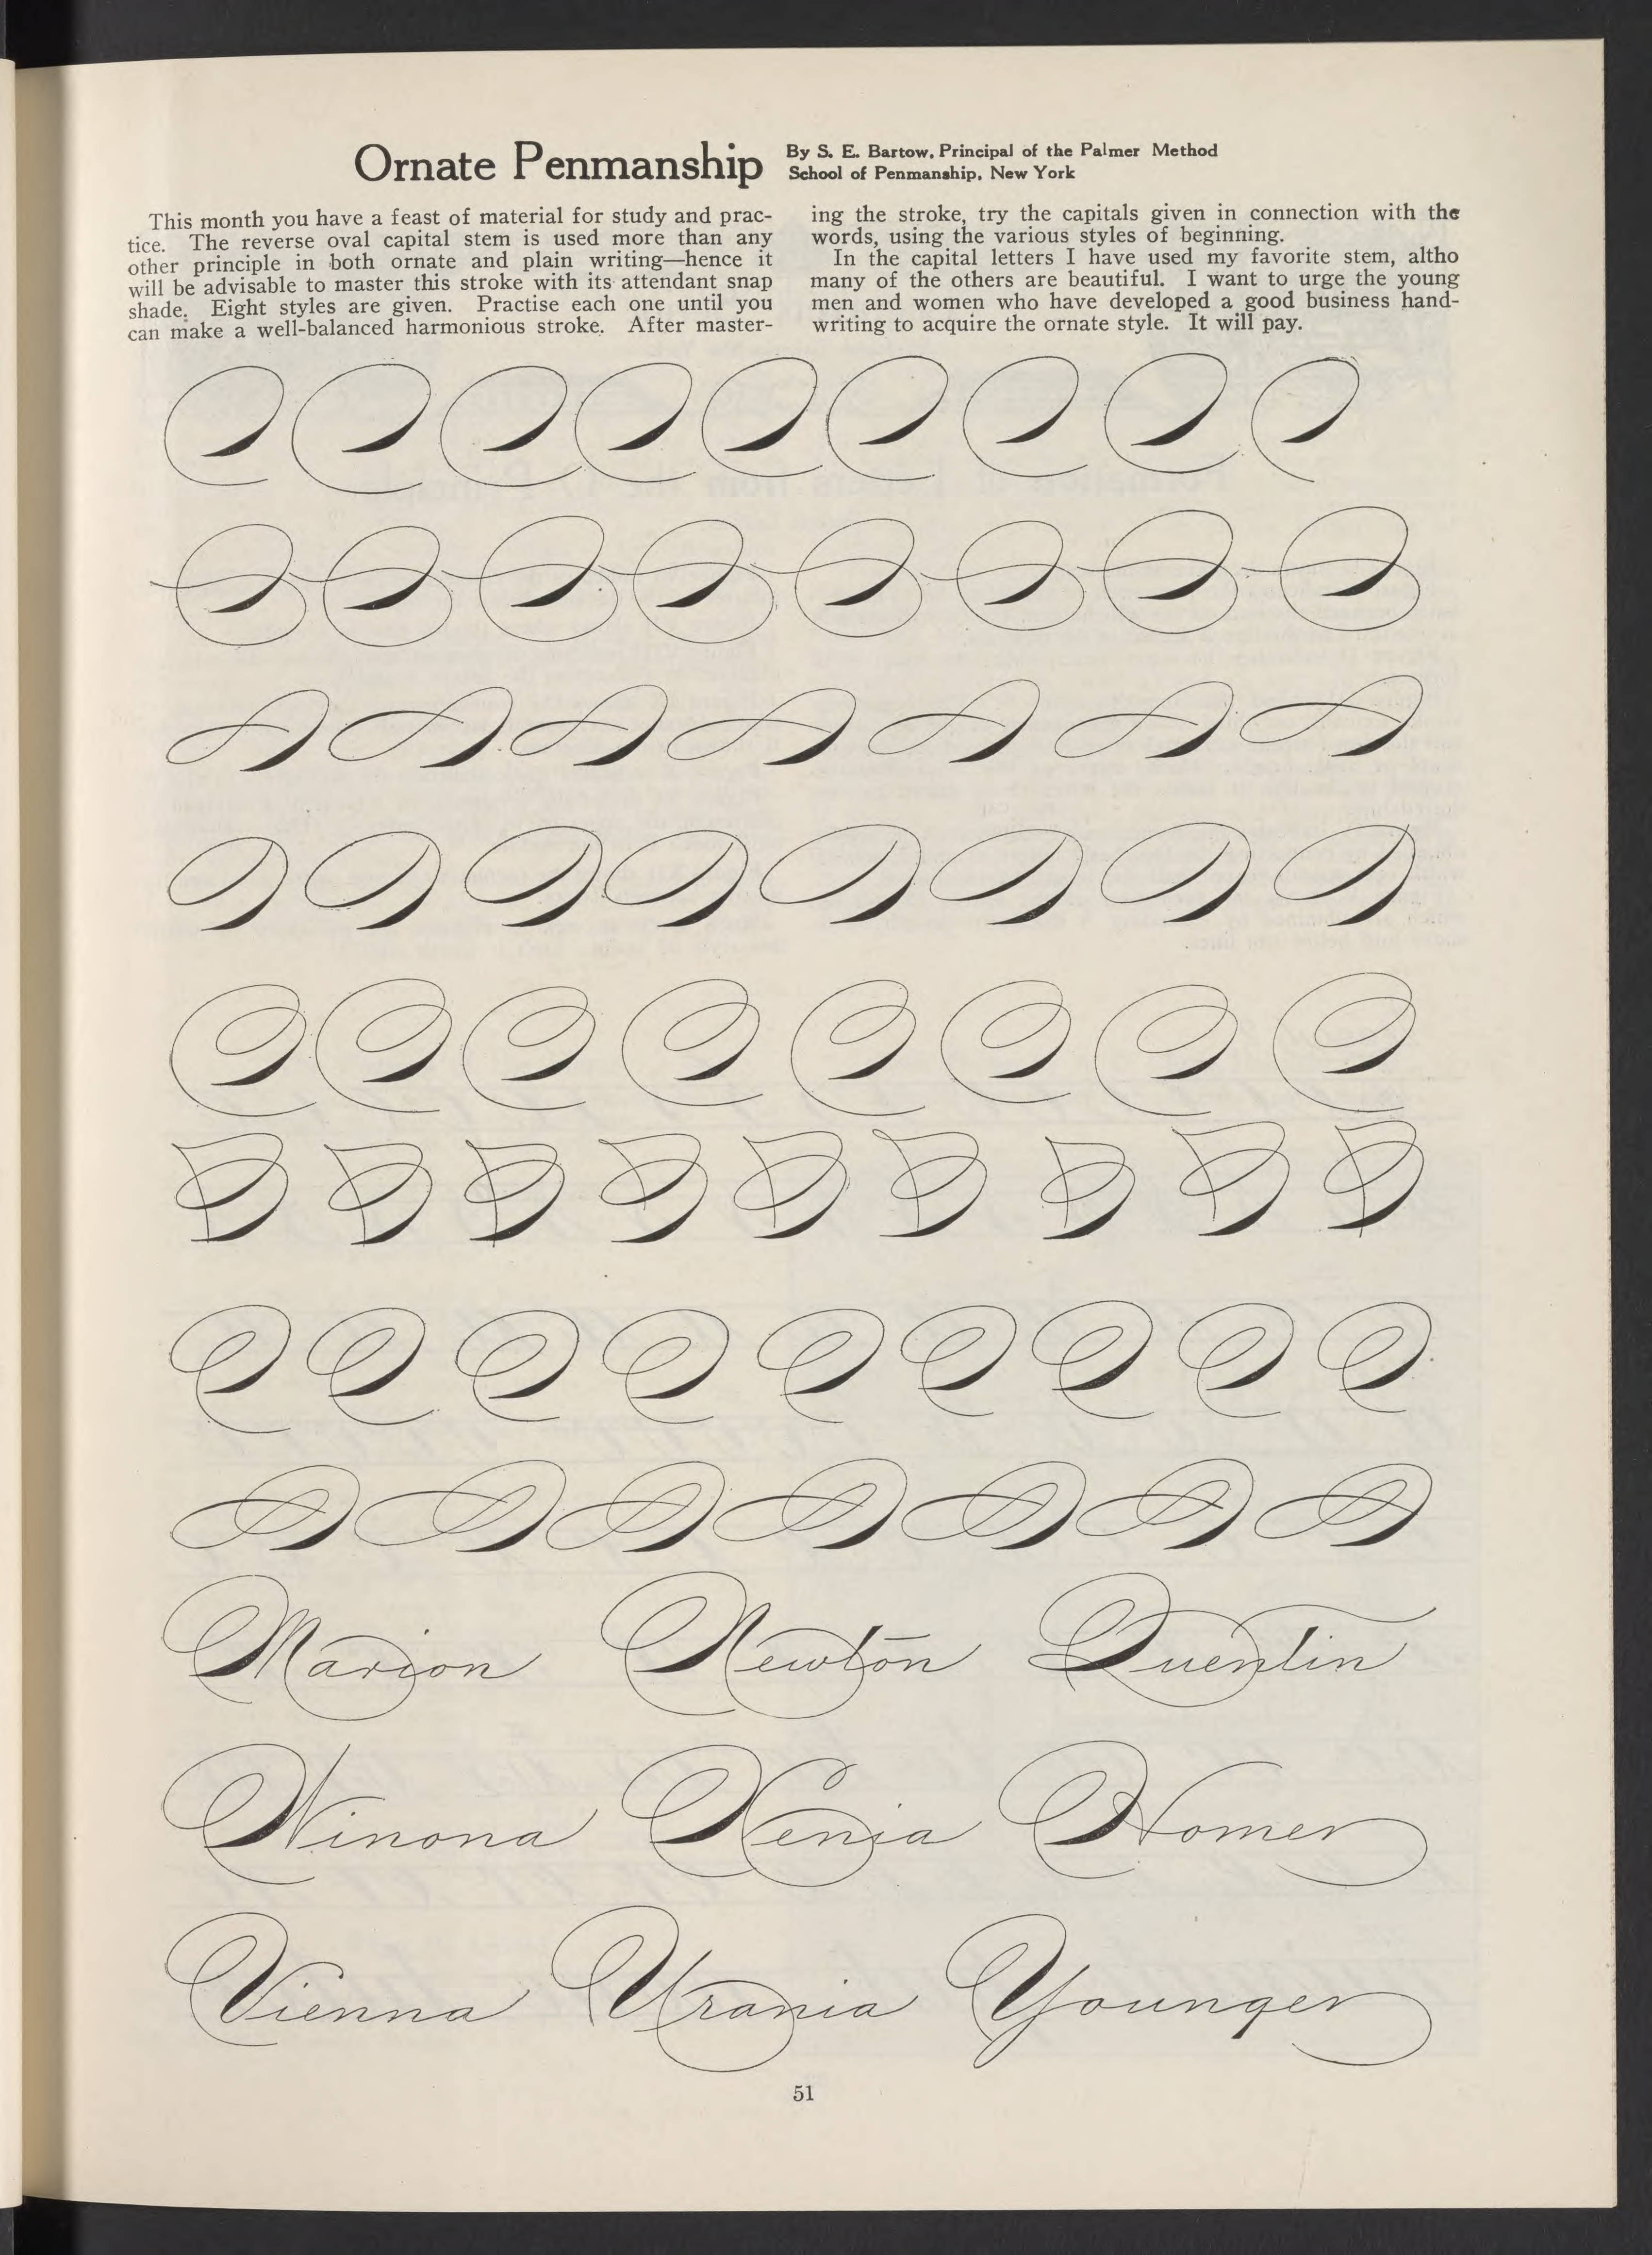 Ornate Penmanship
By S. E. Bartow, Principal of the Palmer Method
School of Penmanship, New York
This month you have a feast of material for study and prac-
tice. The reverse oval capital stem is used more than any
other principle in both ornate and plain writing—hence it
will be advisable to master this stroke with its attendant snap
shade. Eight styles are given. Practise each one until you
can make a well-balanced harmonious stroke. After master-
ing the stroke, try the capitals given in connection with the
words, using the various styles of beginning.
In the capital letters I have used my favorite stem, altho
many of the others are beautiful. I want to urge the young
men and women who have developed a good business hand-
writing to acquire the ornate style. It will pay.
Marion Newton Quentin
Winona Xenia Homer
Vienna Urania Younger
51